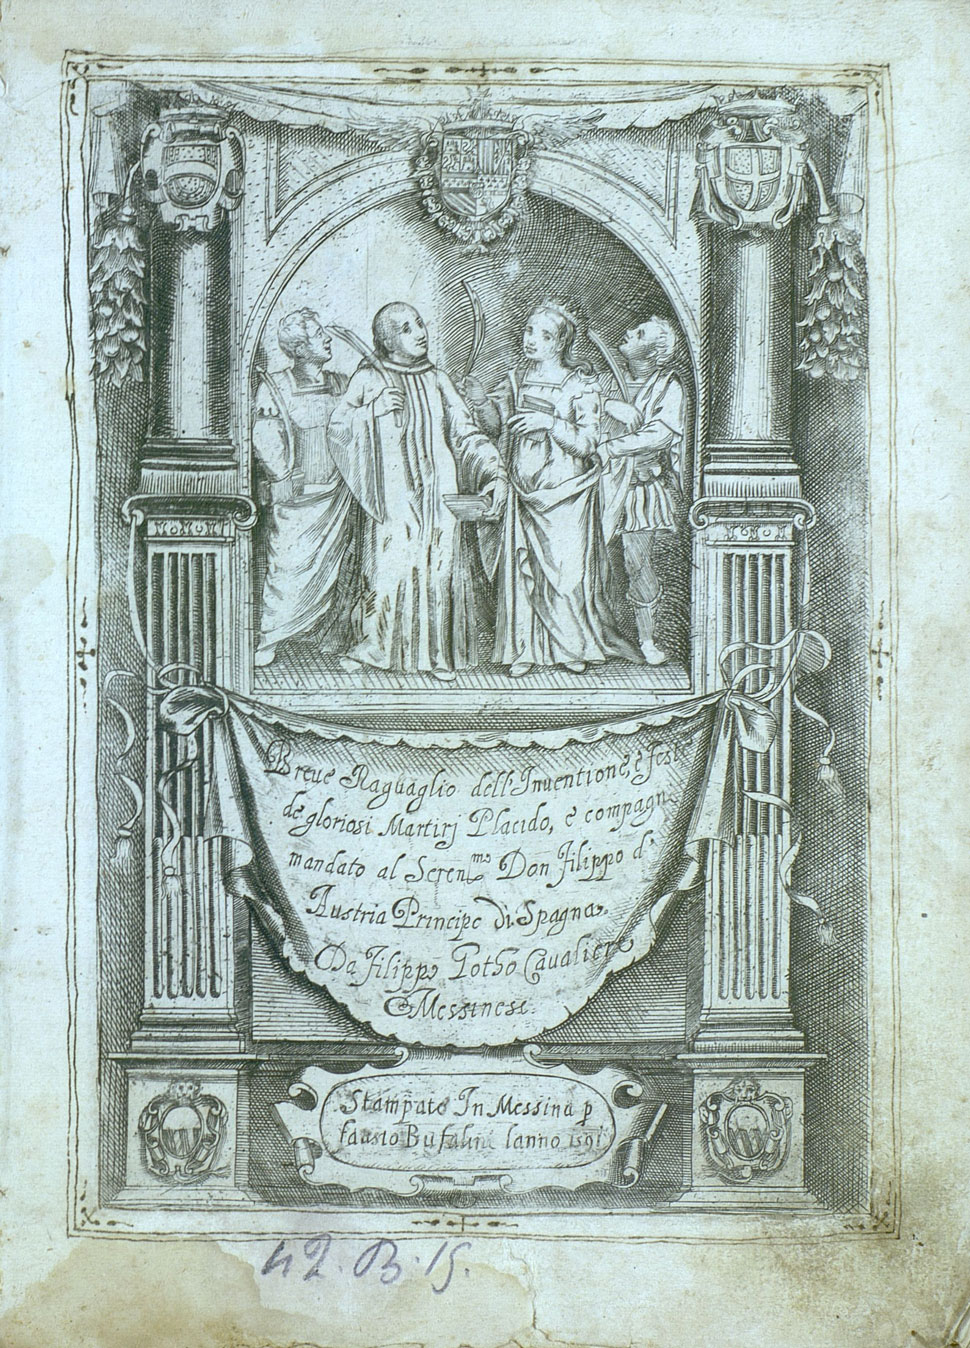 Breve Raguaglio dell'Inuentione, e fest
de gloriosi Martirj Placido, e compagn
mandato al Seren.mo Don filippo d'
Austria Principe di Spagna.
Da filippo Gotho Cavaliere
Messinese.
Stampato In Messina p̄
fausto Bufalini lanno 1591
42.B.15.